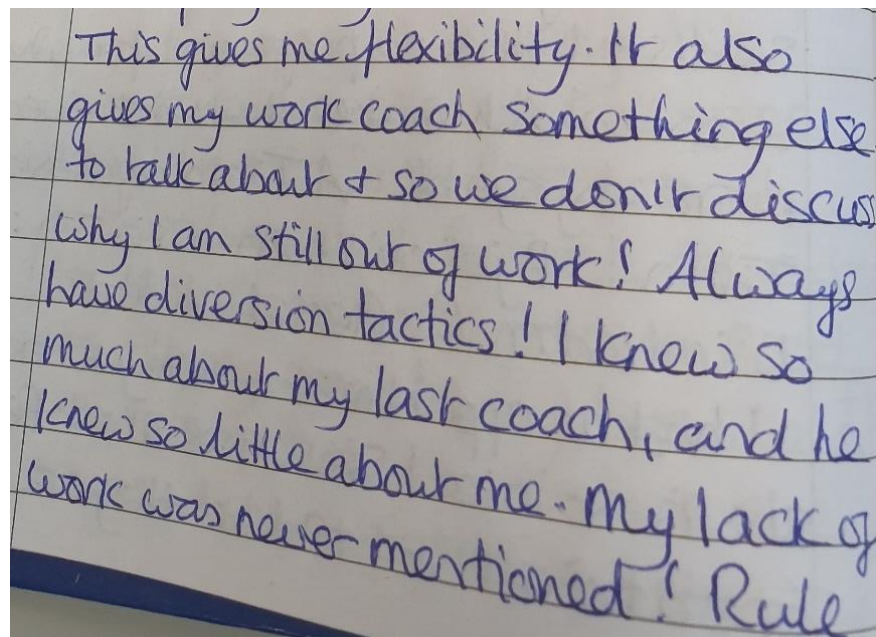 This gives me flexibility. It also
gives my work coach something else
to talk about & so we don't discuss
why I am still out of work! Always
have diversion tactics! I knew so
much about my last coach, and he
knew so little about me. My lack of
work was never mentioned! Rule